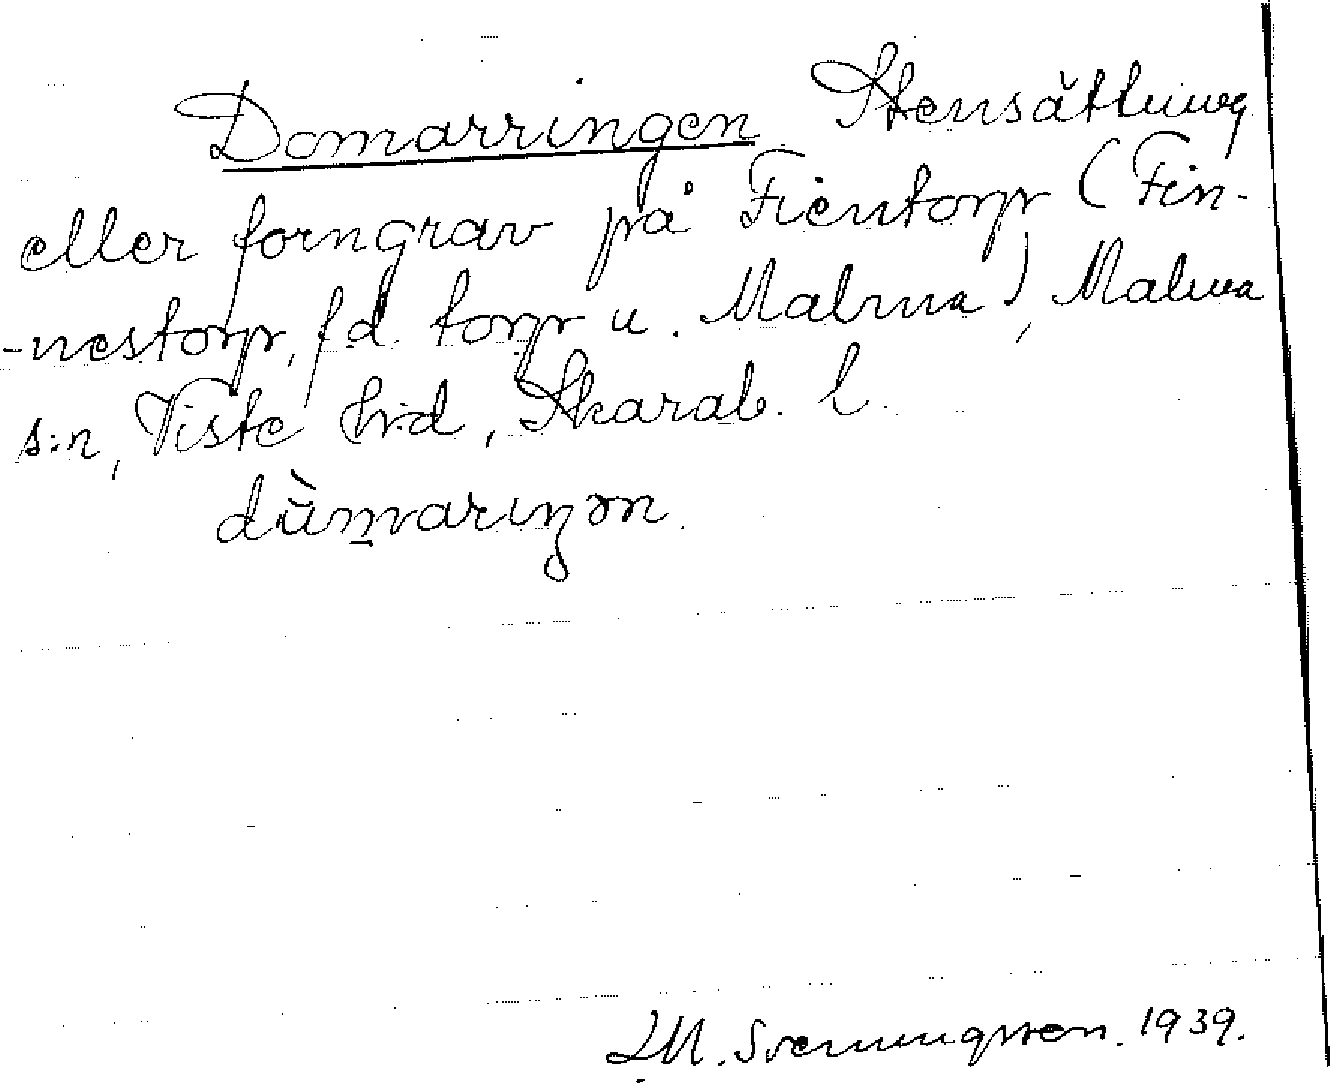 Domarringen Stensättning
eller forngrav på Fientorp (Fin-
-nestorp, f.d. torp u. Malma), Malma
s:n, Viste hrd, Skarab. l.
dùm̲variŋən.
LM. Svenungsson. 1939.